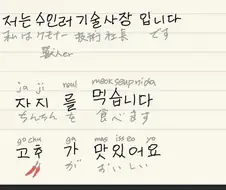 저는 수인러 기술사장 입니다
私は ケモナー 技術 社長 です
獣her
ja ji neul meokseupnida
자지를 먹습니다
ちんちん を 食べます
gochu ga mas isseo yo
고추가 맛있어요
が おいしい